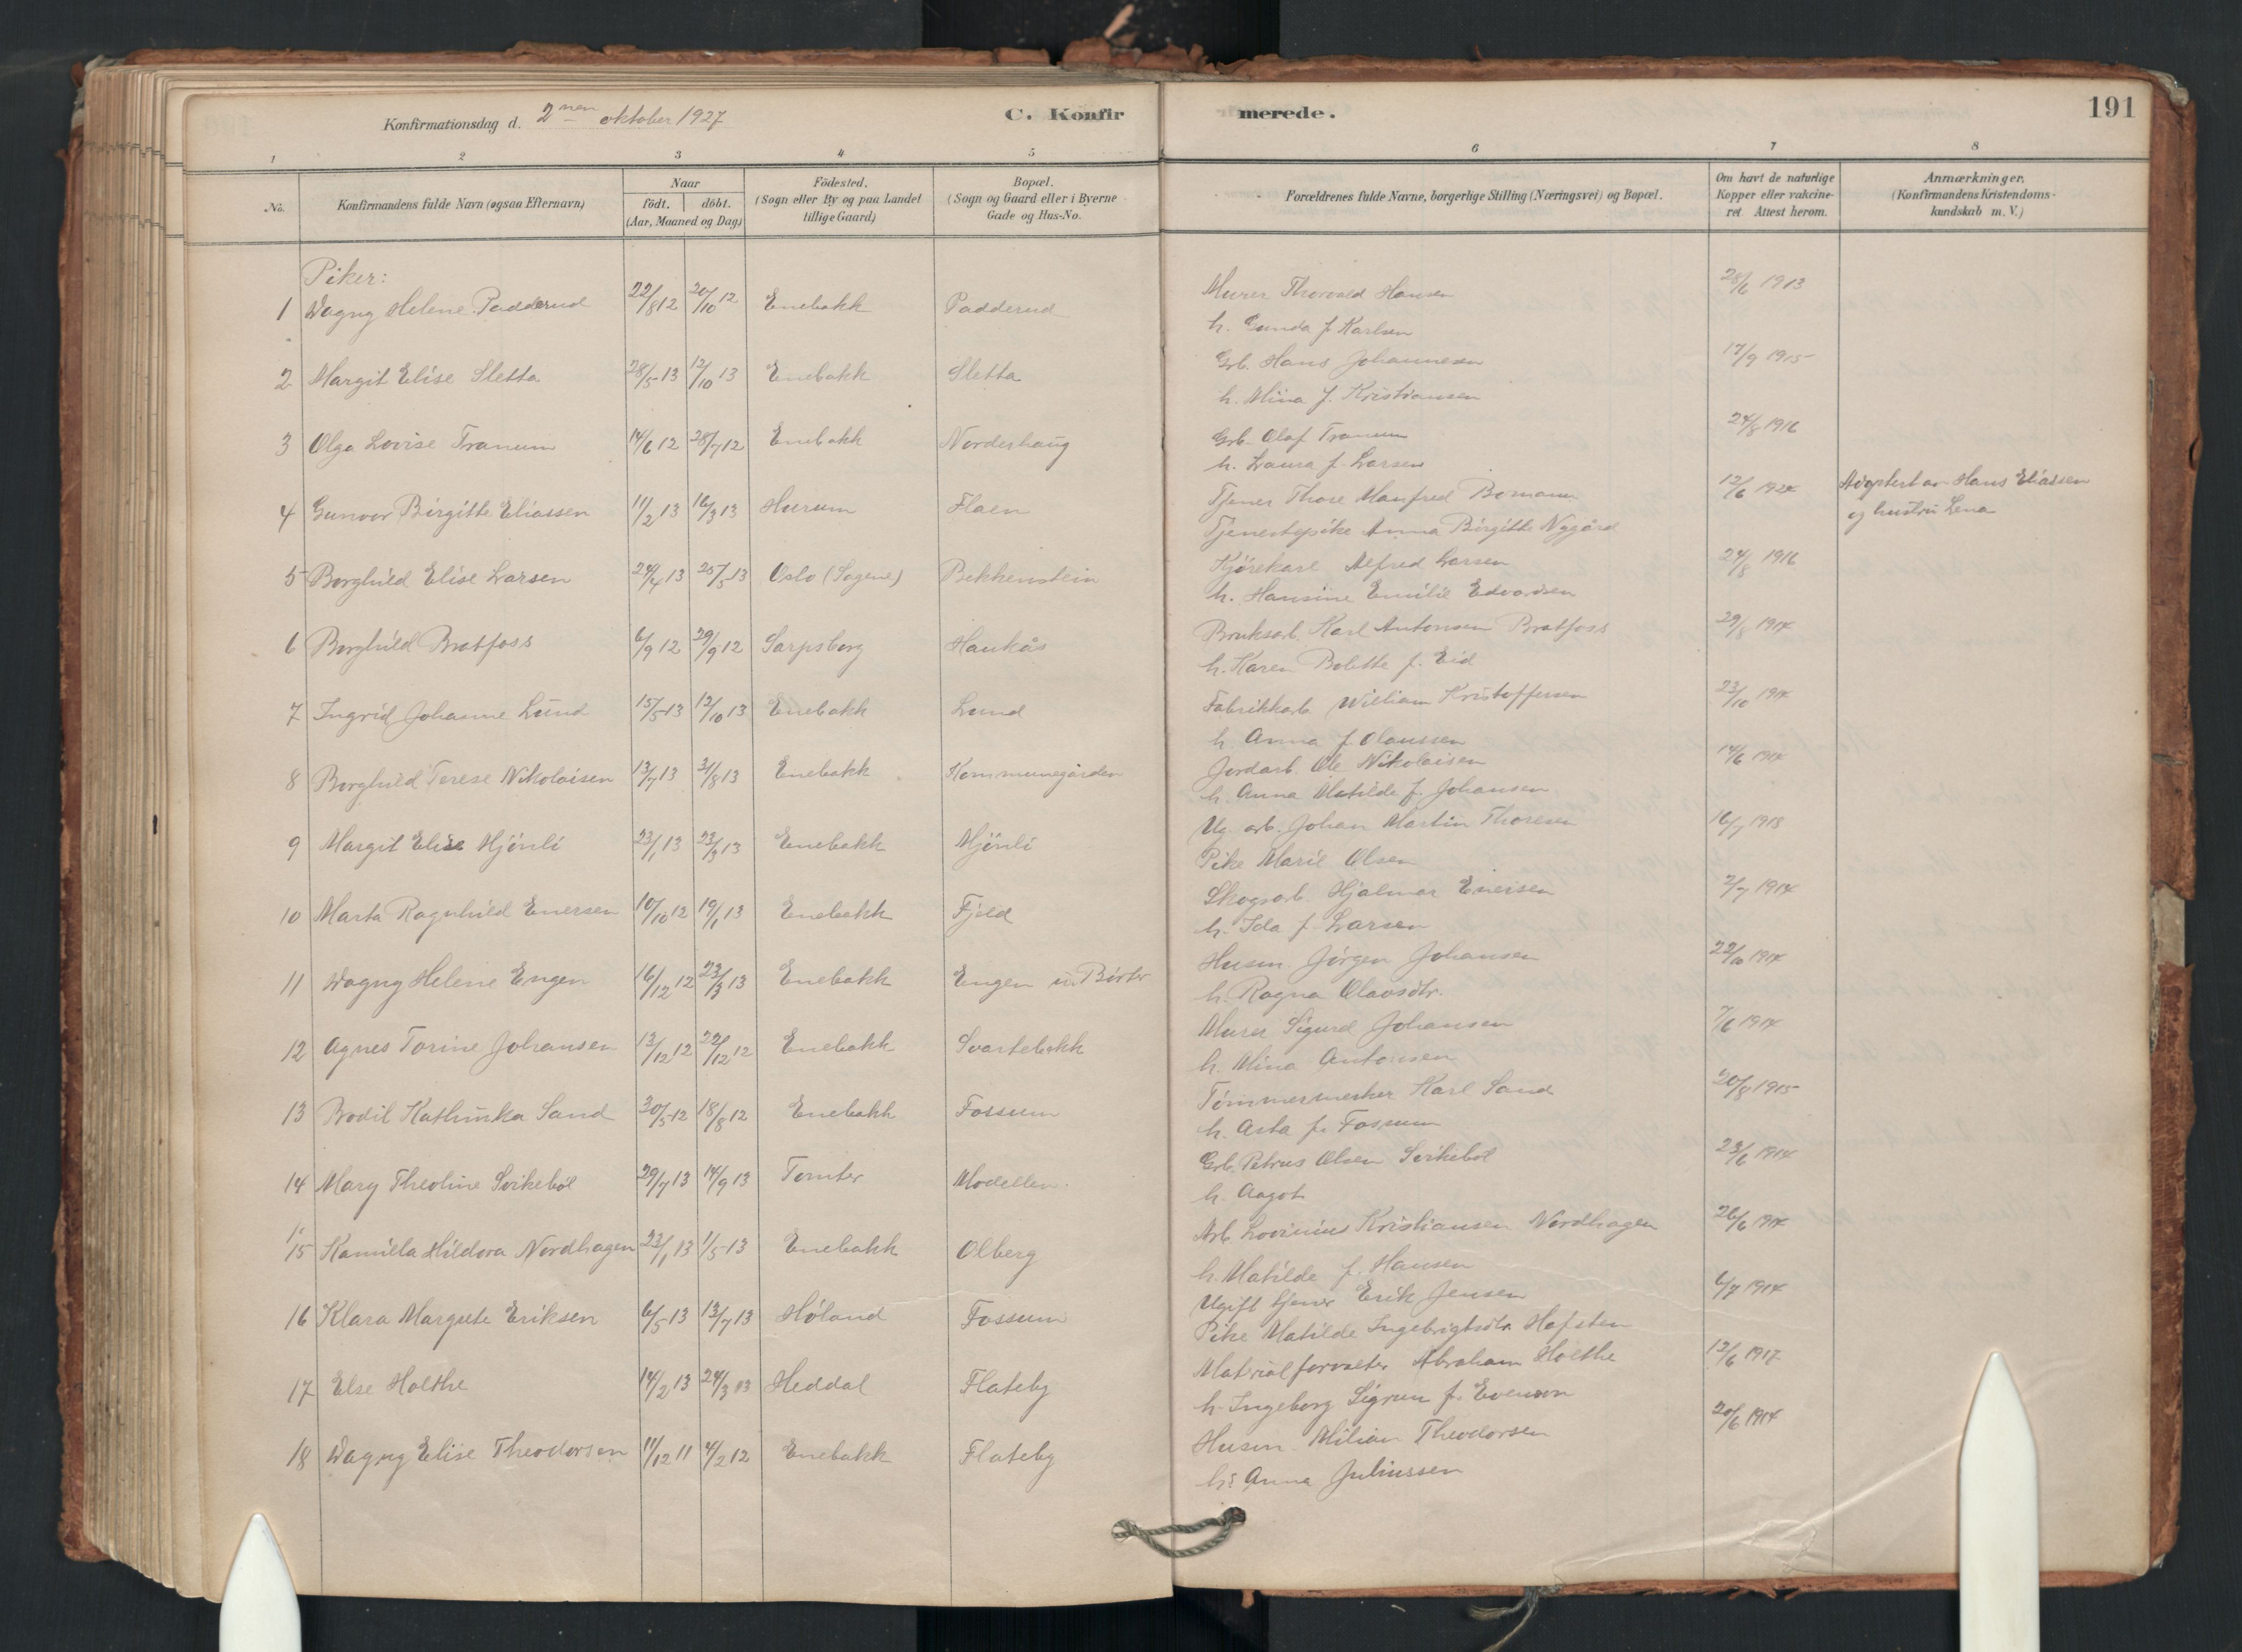 Konfirmationsdag d. 2nen oktober 1927
C. Konfirmerede.
191
1 2 3 4 5 6 7 8
No.
Konfirmandens fulde Navn (ogsaa Efternavn)
Naar
födt. döbt.
(Aar, Maaned og Dag)
Födested.
(Sogn eller By og paa Landet
tillige Gaard)
Bopæl.
(Sogn og Gaard eller i Byerne
Gade og Hus-No.
Forældrenes fulde Navne, borgerlige Stilling (Næringsvei) og Bopæl.
Om havt de naturlige
Kopper eller vakcine-
ret Attest herom.
Anmærkninger.
(Konfirmandens Kristendoms-
kundskab m. V.)
Piker:
1 Dagny Helene Padderud 22/8 12 20/10 12 Enebakk Padderud Murer Thorvald Hansen 28/6 1913
h. Gunda f. Karlsen
2 Margit Elise Sletta 28/5 13 12/10 13 Enebakk Sletta Grb. Hans Johannesen 17/9 1915
h. Mina f. Kristiansen
3 Olga Lovise Tranum 14/6 12 28/7 12 Enebakk Norderhaug Grb. Olaf Tranum 24/8 1916
h. Laura f. Larsen
4 Gunvor Birgitte Eliassen 11/2 13 16/3 13 Hurum Flaen Tjener Thore Manfred Bomann 12/6 1924 Adoptert av Hans Eliassen
Tjenestepike Anna Birgitte Nygård og hustru Lena
5 Borghild Elise Larsen 24/4 13 25/5 13 Oslo (Sagene) Bekkenstein Kjörekarl Alfred Larsen 24/8 1916
h. Hansine Emilie Edvardsen
6 Borghild Bratfoss 6/9 12 29/9 12 Sarpsborg Haukås Bruksarb. Karl Antonsen Bratfoss 29/8 1914
h. Karen Bolette f. Eid
7 Ingrid Johanne Lund 15/5 13 12/10 13 Enebakk Lund Fabrikkarb. William Kristoffersen 23/10 1914
h. Anna f. Olaussen
8 Borghild Terese Nikolaisen 13/7 13 31/8 13 Enebakk Kommunegården Jordarb. Ole Nikolaisen 14/6 1914
h. Anna Matilde f. Johansen
9 Margit Elise Mjönli 23/1 13 23/3 13 Enebakk Mjönli Ug. arb. Johan Martin Thoresen 16/7 1918
Pike Marie Olsen
10 Marta Ragnhild Enersen 10/10 12 19/1 13 Enebakk Fjeld Skogsarb. Hjalmar Eneisen 2/7 1914
h. Ida f. Larsen
11 Dagny Helene Engen 16/12 12 23/3 13 Enebakk Engen u. Börter Husm. Jörgen Johansen 22/10 1914
h. Ragna Olavsdtr.
12 Agnes Torine Johansen 13/12 12 22/12 12 Enebakk Svartebekk Murer Sigurd Johansen 7/6 1914
h. Mina Antonsen
13 Bodil Kathinka Sand 30/5 12 18/8 12 Enebakk Fossum Tömmermerker Karl Sand 20/8 1915
h. Asta f. Fossum
14 Mary Theoline Svikeböl 29/7 13 14/9 13 Tomter Modellen. Grb. Petrus Olsen Svikeböl 23/6 1914
h. Aagot
15 Kamilla Hildora Nordhagen 23/1 13 1/5 13 Enebakk Olberg Arb. Lovinius Kristiansen Nordhagen 26/6 1914
h. Matilde f. Hansen
16 Klara Margrete Eriksen 6/5 13 13/7 13 Höland Fossum Ugift tjener Erik Jensen 6/7 1914
Pike Matilde Ingebrigtsdtr. Hofsten
17 Else Holthe 14/2 13 24/3 13 Heddal Flateby Materialforvalter Abraham Holthe 12/6 1917
h. Ingeborg Sigrun f. Evenson
18 Dagny Elise Theodorsen 11/12 11 4/2 12 Enebakk Flateby Husm. Milian Theodorsen 20/6 1914
h. Anna Juliussen